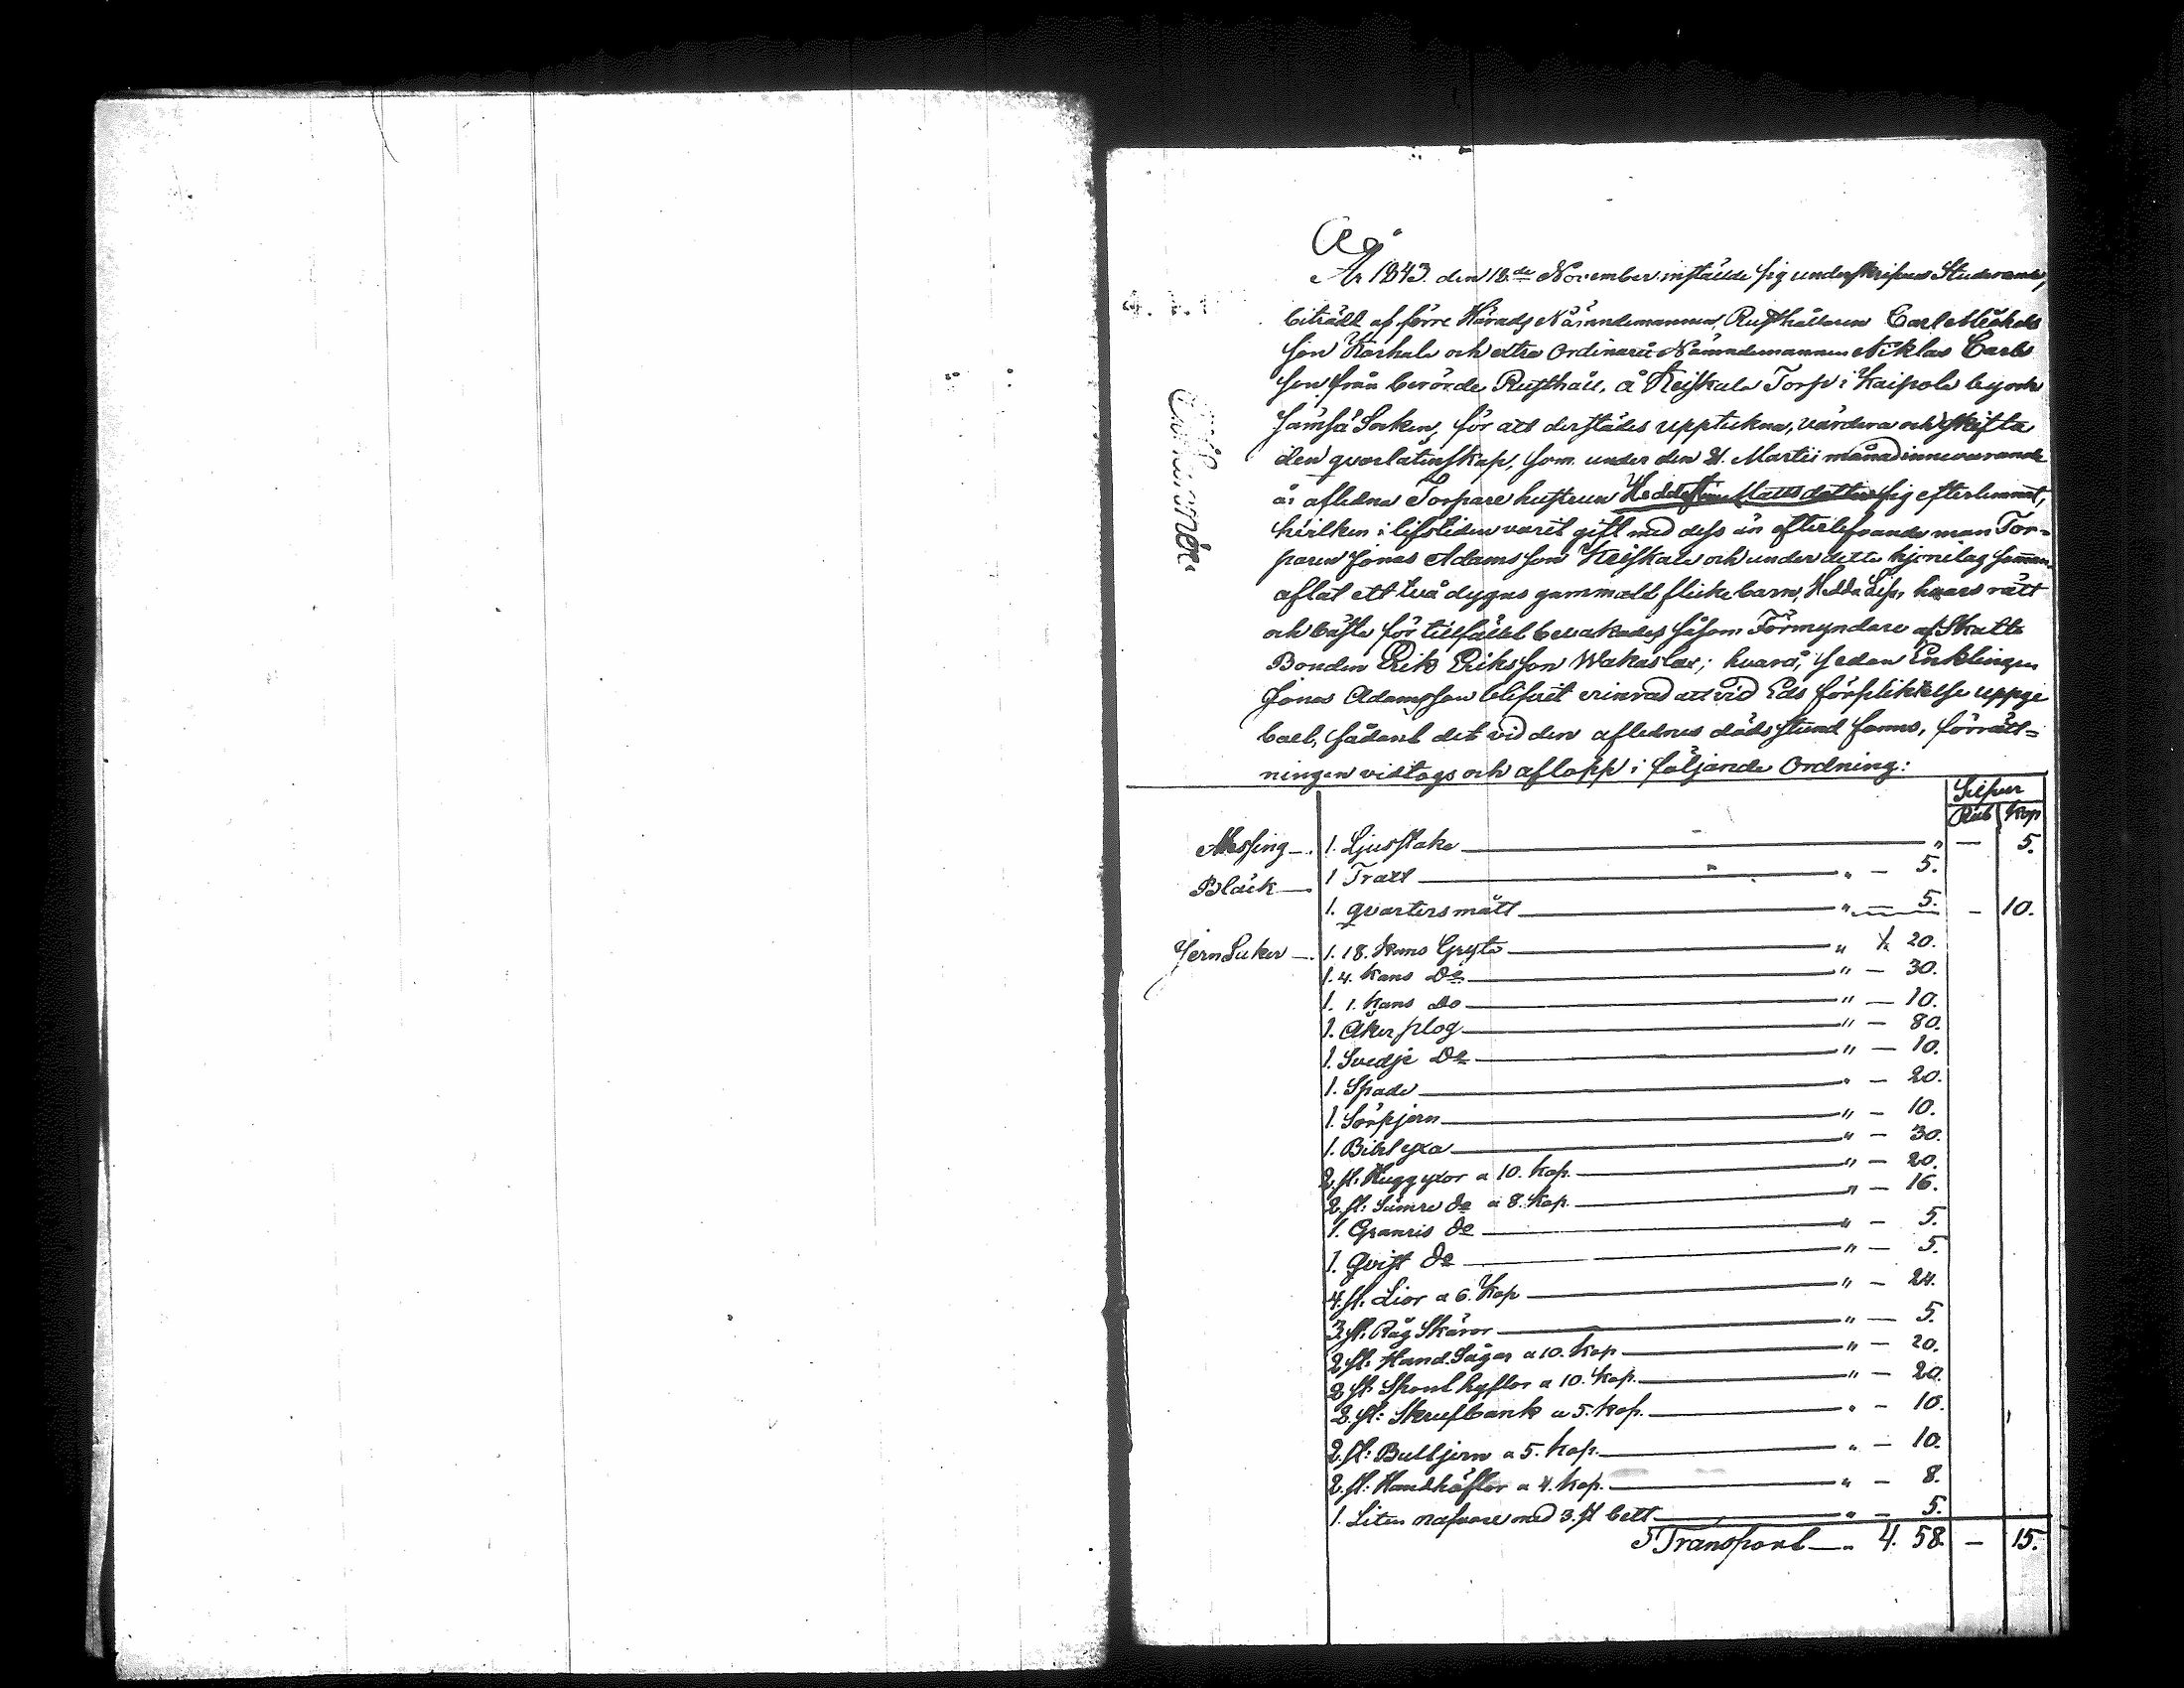 År 1843. den 18.de November instälde sig underskrifne Studerande,
biträdd af förre Härads Nämndemannen, Rusthållaren Carl Michels
son Karhala och extra Ordinarie Nämndemannen Niklas Carls
son från berörde Rusthåll, å Keiskala Torp i Kaipola by och
Jämsä Socken, för att derstädes uppteckna, värdera och skifta
den qvarlåtenskap, som under den 21. Martii månad innevarande
år aflidna Torpare hustrun Hedda Matts dotter sig efterlemnat,
hvilken i lifstiden varit gift med dess än efterlefvande man Tor=
paren Jonas Adamsson Keiskala och under detta hjonelag samman
aflat ett två dygns gammalt flicke barn, Hedda Lisa, hvars rätt
och bästa för tillfället bevakades såsom Förmyndare af Skatte
Bonden Erik Eriksson Wakaslax; hvarå, sedan Enklingen
Jonas Adamsson blifvit erinrad att vid Eds förpliktelse uppge
boet, sådant det vid den aflednes dödsstund fanns, förrätt=
ningen vidtogs och aflopp i följande Ordning:
Silfver
Rub Kop
Messing 1. Ljusstake " — 5.
Bläck 1 Tratt " — 5.
1. qvartersmått " — 5. — 10.
Jern Saker 1. 18. Kans Gryta " 1. 20.
1. 4. Kans Do " — 30.
1. 1. Kans Do " — 10.
1. Åker plog " — 80.
1. Svedje Do " — 10.
1. Spade " — 20.
1. Sörpjern " — 10.
1. Bihlyxa " — 30.
2. st: Huggyxor a 10. Kop. " — 20.
2. st: Sämre do a 8. Kop. " — 16.
1. Granris do " — 5.
1. Qvist do " — 5.
4. st. Lior a 6. Kop " — 24.
3. st. Råg Skäror " — 5.
2. st. Hand Sågar a 10. Kop " — 20.
2 st. Sponthyflor a 10. Kop. " — 20.
2. st: Skrufbank a 5. Kop. " — 10.
2. st: Bulljern a 5. Kop. " — 10.
2. st. Handhäflor a 4. Kop. " — 8.
1. Liten nafvare med 3. st bett " — 5.
Transport " 4. 58. — 15.